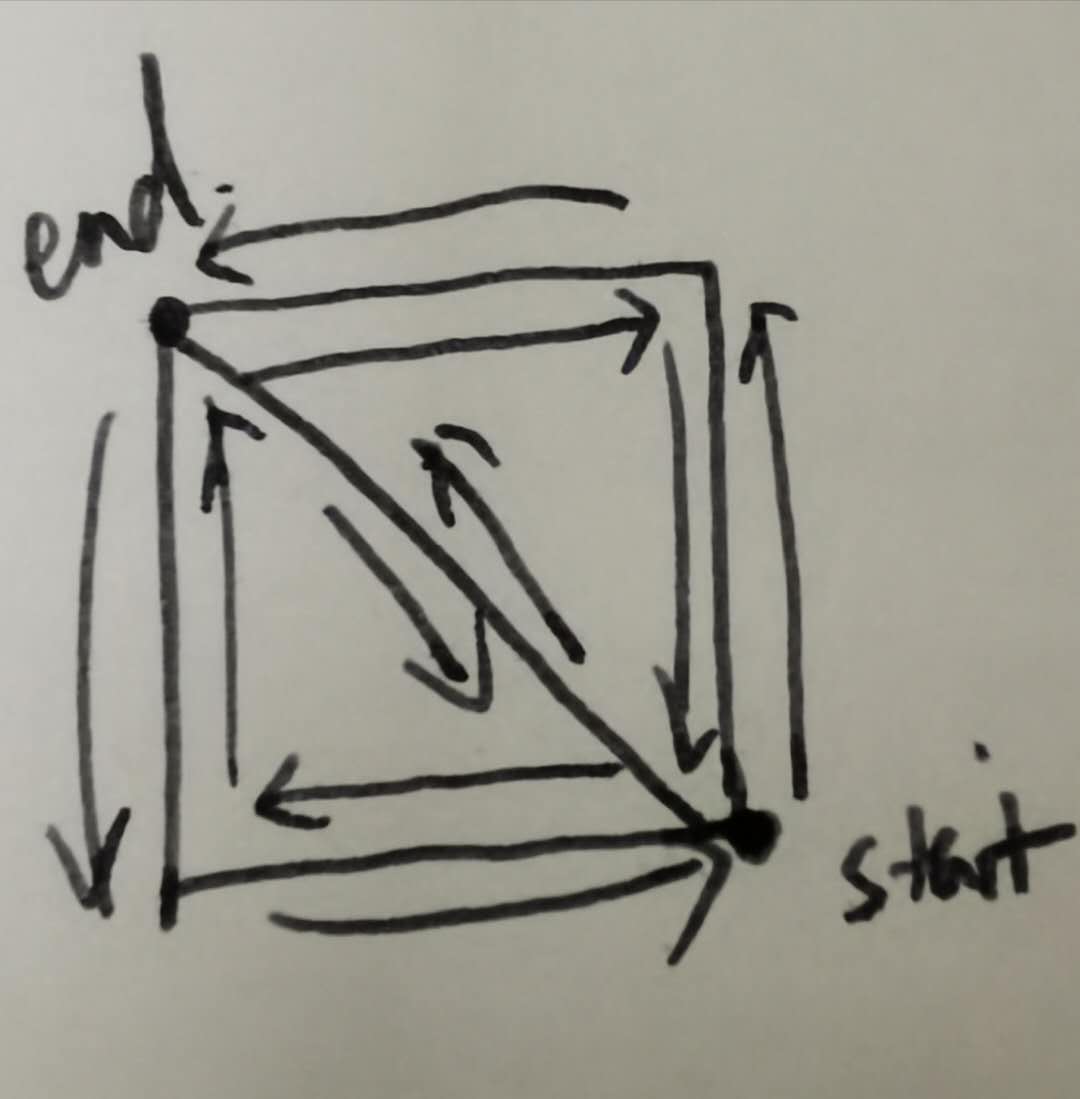 end.
start